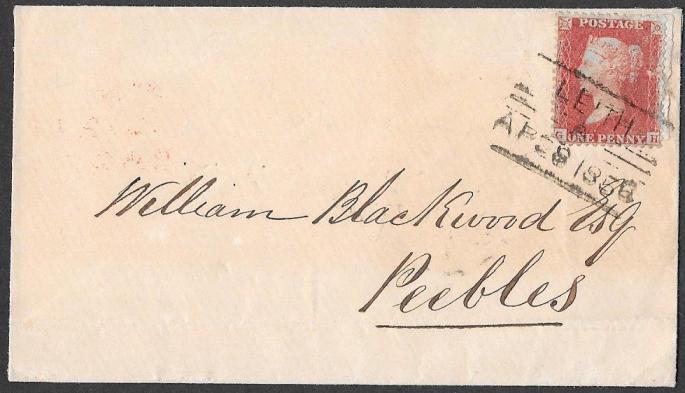 POSTAGE
G H
ONE PENNY
LEITH
A
AP 29 1856
William Blackwood Esq
Peebles